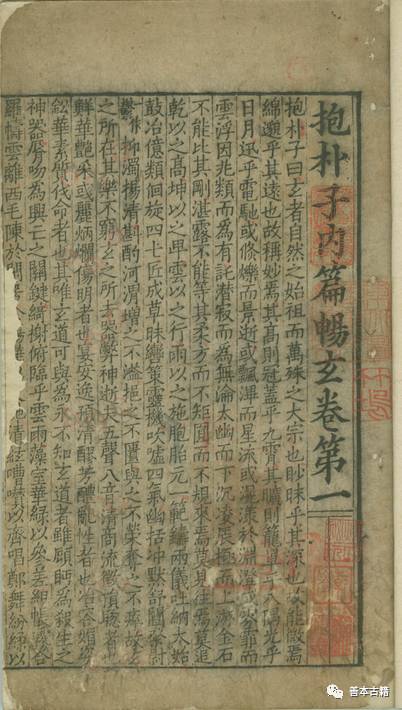 抱朴子內篇暢玄卷第一
抱朴子曰玄者自然之始祖而萬殊之大宗也眇昧乎其深也故能微焉
綿邈乎其遠也故稱妙焉其高則冠蓋乎九霄其曠則籠罩乎八隅光乎
日月迅乎電馳或倏爍而景逝或飄滭而星流或滉漾於淵澄或雰霏而
雲浮因兆類而為有託潛寂而為無淪太幽而下沉凌辰極而上游金石
不能比其剛湛露不能等其柔方而不矩圓而不規來焉莫見往焉莫追
乾以之高坤以之卑雲以之行雨以之施胞胎元一範鑄兩儀吐納太始
鼓冶億類佪旋四七匠成草昧轡策靈機吹噓四氣幽括冲默舒闡粲尉
抑濁揚清斟酌河渭增之不溢挹之不匱與之不榮奪之不瘁故玄
之所在其樂不窮玄之所去器弊神逝夫五聲八音清商流徵損聰者也
鮮華艷采或麗炳爛傷明者也宴安逸預清醪芳醴亂性者也冶容媚姿
鉛華素質伐命者也其唯玄道可與為永不知玄道者雖顧眄為殺生之
神器脣吻為興亡之關鍵綺榭俯臨乎雲雨藻室華綠以參差組帳霧合
羅幬雲離西毛陳於閑房金觴華以交馳清絃嘈囋以齊唱鄭舞紛䋴以
善本古籍